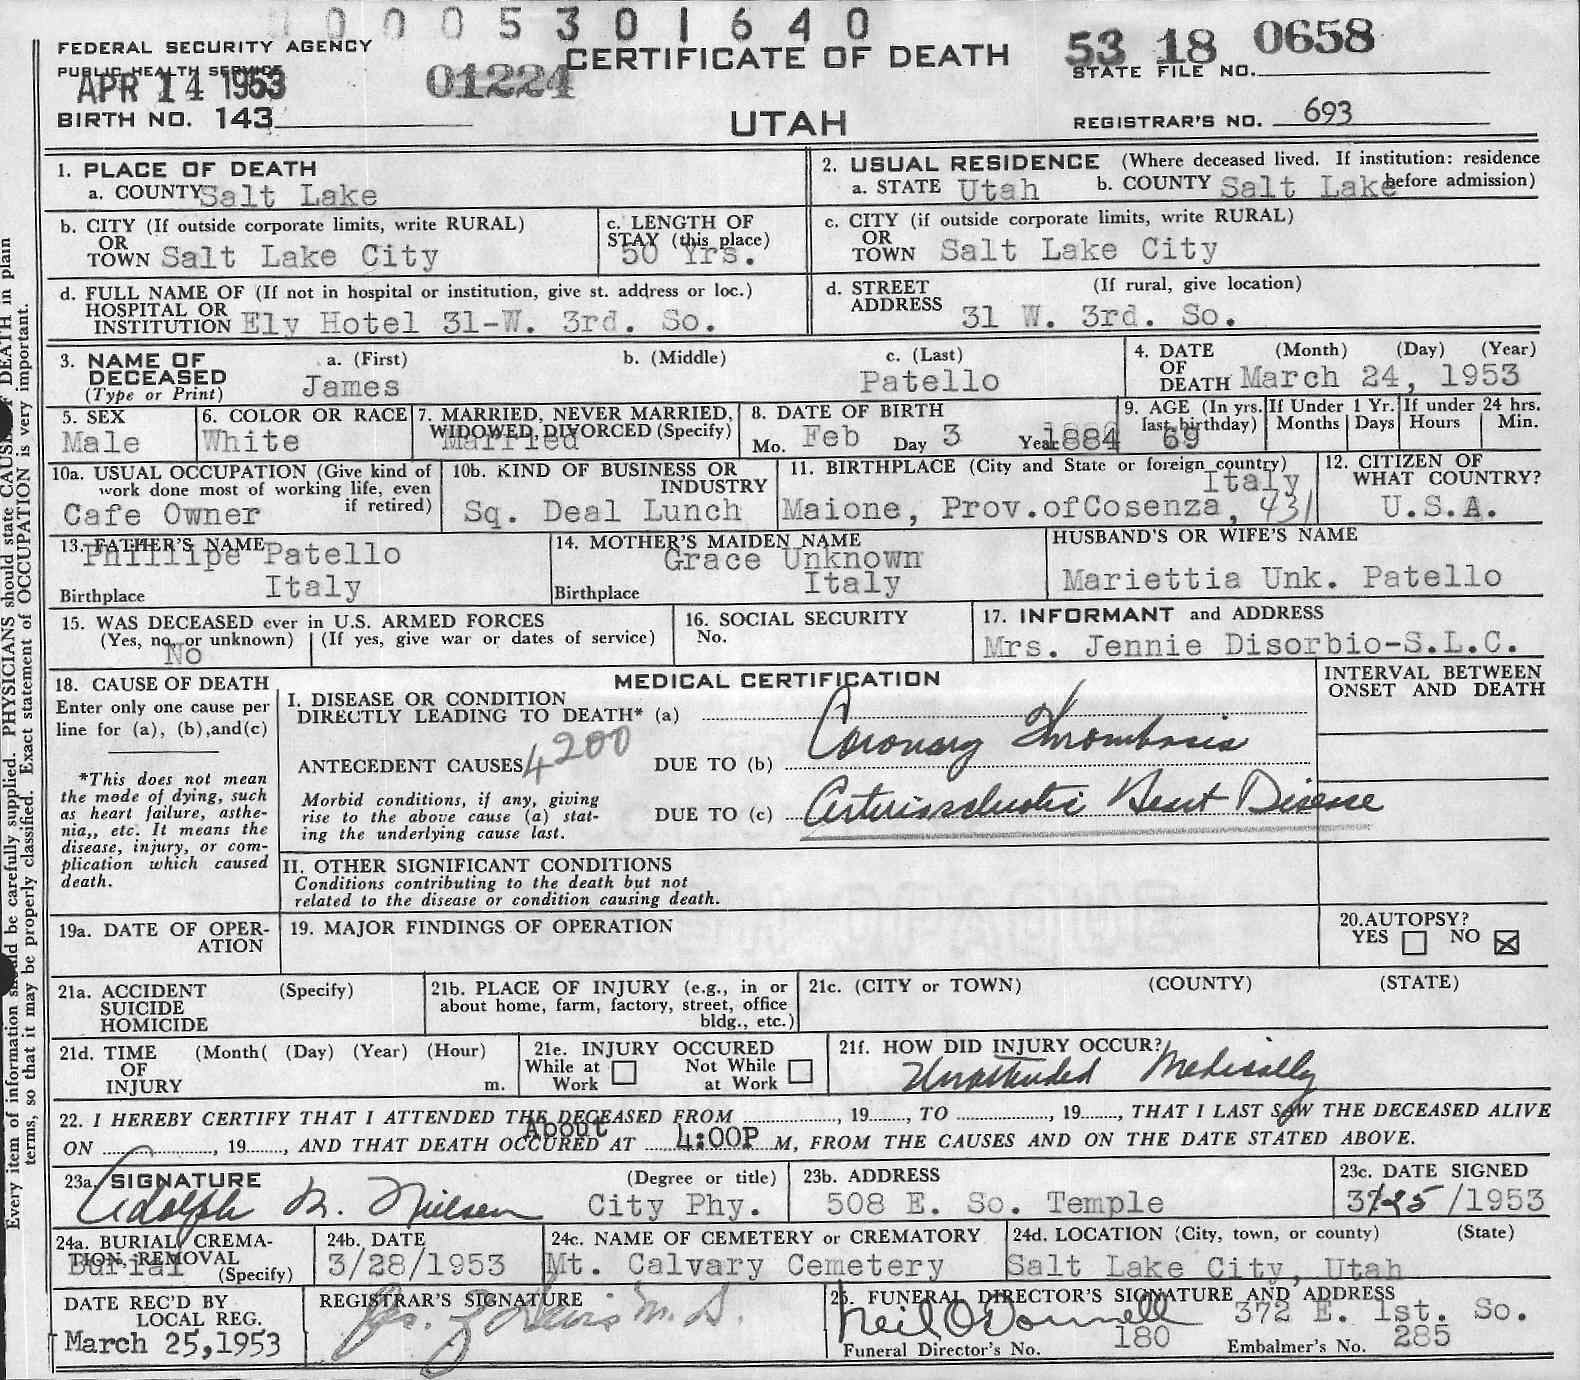 00005301640
FEDERAL SECURITY AGENCY
PUBLIC HEALTH SERVICE
APR 14 1953
01224
CERTIFICATE OF DEATH
53 18 0658
STATE FILE NO.
BIRTH NO. 143
UTAH
REGISTRAR'S NO. 693
1. PLACE OF DEATH
a. COUNTY Salt Lake
2. USUAL RESIDENCE (Where deceased lived. If institution: residence before admission)
a. STATE Utah b. COUNTY Salt Lake
b. CITY (If outside corporate limits, write RURAL)
OR
TOWN Salt Lake City
c. LENGTH OF
STAY (this place)
50 Yrs.
c. CITY (if outside corporate limits, write RURAL)
OR
TOWN Salt Lake City
d. FULL NAME OF (If not in hospital or institution, give st. address or loc.)
HOSPITAL OR
INSTITUTION Ely Hotel 31-W. 3rd. So.
d. STREET (If rural, give location)
ADDRESS 31 W. 3rd. So.
3. NAME OF DECEASED
(Type or Print)
a. (First) b. (Middle) c. (Last)
James Patello
4. DATE OF DEATH (Month) (Day) (Year)
March 24, 1953
5. SEX
Male
6. COLOR OR RACE
White
7. MARRIED, NEVER MARRIED,
WIDOWED, DIVORCED (Specify)
Married
8. DATE OF BIRTH
Mo. Feb Day 3 Year 1884
9. AGE (In yrs. last birthday)
69
If Under 1 Yr.
Months Days
If under 24 hrs.
Hours Min.
10a. USUAL OCCUPATION (Give kind of
work done most of working life, even
if retired)
Cafe Owner
10b. KIND OF BUSINESS OR
INDUSTRY
Sq. Deal Lunch
11. BIRTHPLACE (City and State or foreign country)
Italy
Maione, Prov.ofCosenza, 431
12. CITIZEN OF
WHAT COUNTRY?
U.S.A.
13. FATHER'S NAME
Phillipe Patello
Birthplace Italy
14. MOTHER'S MAIDEN NAME
Grace Unknown
Birthplace Italy
HUSBAND'S OR WIFE'S NAME
Mariettia Unk. Patello
15. WAS DECEASED ever in U.S. ARMED FORCES
(Yes, no, or unknown) (If yes, give war or dates of service)
No
16. SOCIAL SECURITY
No.
17. INFORMANT and ADDRESS
Mrs. Jennie Disorbio-S.L.C.
18. CAUSE OF DEATH
Enter only one cause per
line for (a), (b),and(c)
*This does not mean
the mode of dying, such
as heart failure, asthe-
nia,, etc. It means the
disease, injury, or com-
plication which caused
death.
MEDICAL CERTIFICATION
INTERVAL BETWEEN
ONSET AND DEATH
I. DISEASE OR CONDITION
DIRECTLY LEADING TO DEATH* (a)
Coronary Thrombosis
ANTECEDENT CAUSES 4200 DUE TO (b)
Morbid conditions, if any, giving
rise to the above cause (a) stat-
ing the underlying cause last.
DUE TO (c) Arteriosclerotic Heart Disease
II. OTHER SIGNIFICANT CONDITIONS
Conditions contributing to the death but not
related to the disease or condition causing death.
19a. DATE OF OPER-
ATION
19. MAJOR FINDINGS OF OPERATION
20.AUTOPSY?
YES NO
21a. ACCIDENT (Specify)
SUICIDE
HOMICIDE
21b. PLACE OF INJURY (e.g., in or
about home, farm, factory, street, office
bldg., etc.)
21c. (CITY or TOWN) (COUNTY) (STATE)
21d. TIME (Month( (Day) (Year) (Hour)
OF
INJURY m.
21e. INJURY OCCURED
While at Work Not While at Work
21f. HOW DID INJURY OCCUR?
Unattended Medically
22. I HEREBY CERTIFY THAT I ATTENDED THE DECEASED FROM , 19 , TO , 19 , THAT I LAST SAW THE DECEASED ALIVE
About
ON , 19 , AND THAT DEATH OCCURED AT 4:00P M, FROM THE CAUSES AND ON THE DATE STATED ABOVE.
23a. SIGNATURE (Degree or title)
Adolph M. Nielsen City Phy.
23b. ADDRESS
508 E. So. Temple
23c. DATE SIGNED
3/25/1953
24a. BURIAL, CREMA-
TION, REMOVAL
(Specify)
Burial
24b. DATE
3/28/1953
24c. NAME OF CEMETERY or CREMATORY
Mt. Calvary Cemetery
24d. LOCATION (City, town, or county) (State)
Salt Lake City, Utah
DATE REC'D BY
LOCAL REG.
March 25,1953
REGISTRAR'S SIGNATURE
M. D.
25. FUNERAL DIRECTOR'S SIGNATURE AND ADDRESS
Neil O'Donnell 372 E. 1st. So.
Funeral Director's No. 180 Embalmer's No. 285
Every item of information should be carefully supplied. PHYSICIANS should state CAUSE OF DEATH in plain
terms, so that it may be properly classified. Exact statement of OCCUPATION is very important.